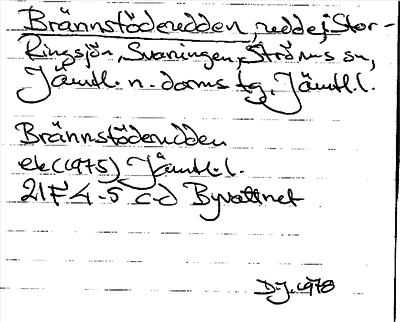 Brännstöderudden, udde i Stor-
Ringsjön, Svaningen, Ströms sn,
Jämtl. n. doms tg, Jämtl. l.
Brännstöderudden
ek (1975) Jämtl. l.
21F 4-5 c-d Byvattnet
D.J. 1978